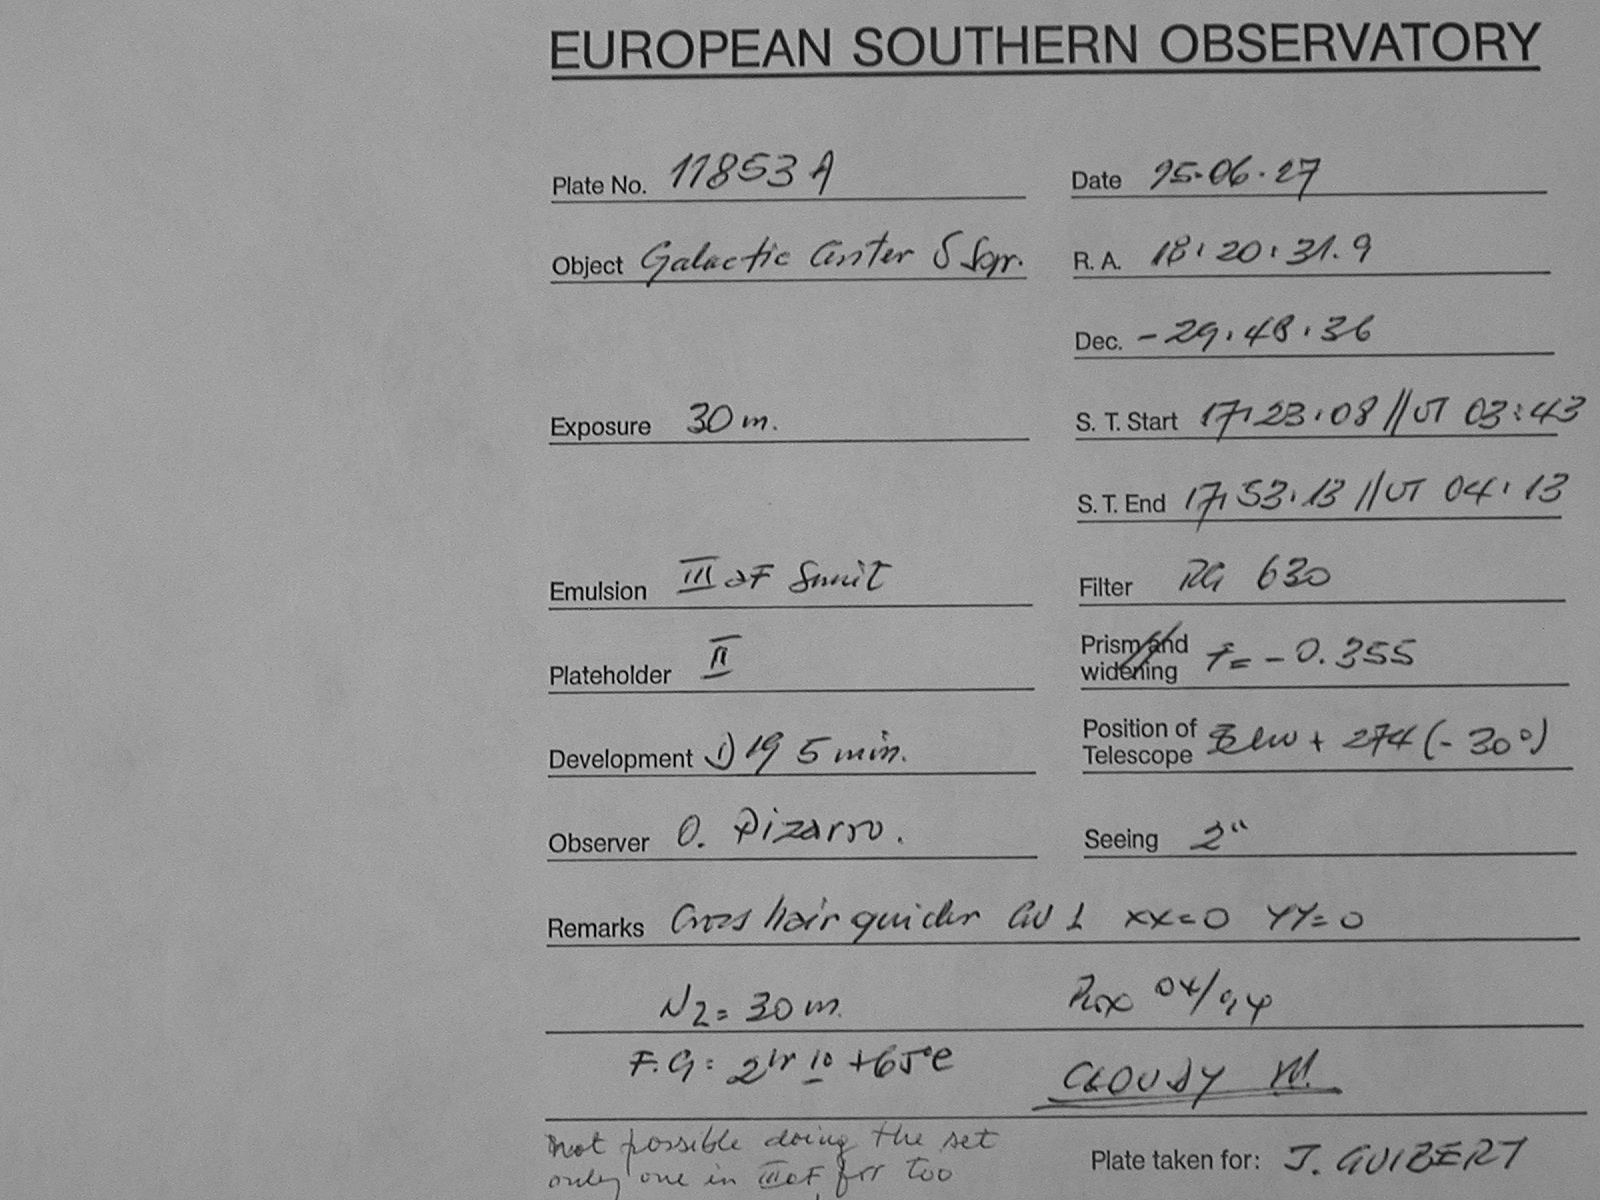 EUROPEAN SOUTHERN OBSERVATORY
Plate No. 11853 A
Date 95.06.27
Object Galactic Center S Sgr.
R. A. 18:20:31.9
Dec. -29.48.36
Exposure 30 m.
S. T. Start 17:23:08 // UT 03:43
S. T. End 17:53:13 // UT 04:13
Emulsion III aF
Filter RG 630
Plateholder II
Prism and widening f = -0.355
Development 1) 19 5 min.
Position of Telescope + 274 (-30°)
Observer O. Pizarro.
Seeing 2"
Remarks Cross hair guider GV 1 XX=0 YY=0
N2 = 30 m.
F.G: 2hr 10 +65°C
CLOUDY
not possible doing the set
only one in III aF for too
Plate taken for: J. GUIBERT